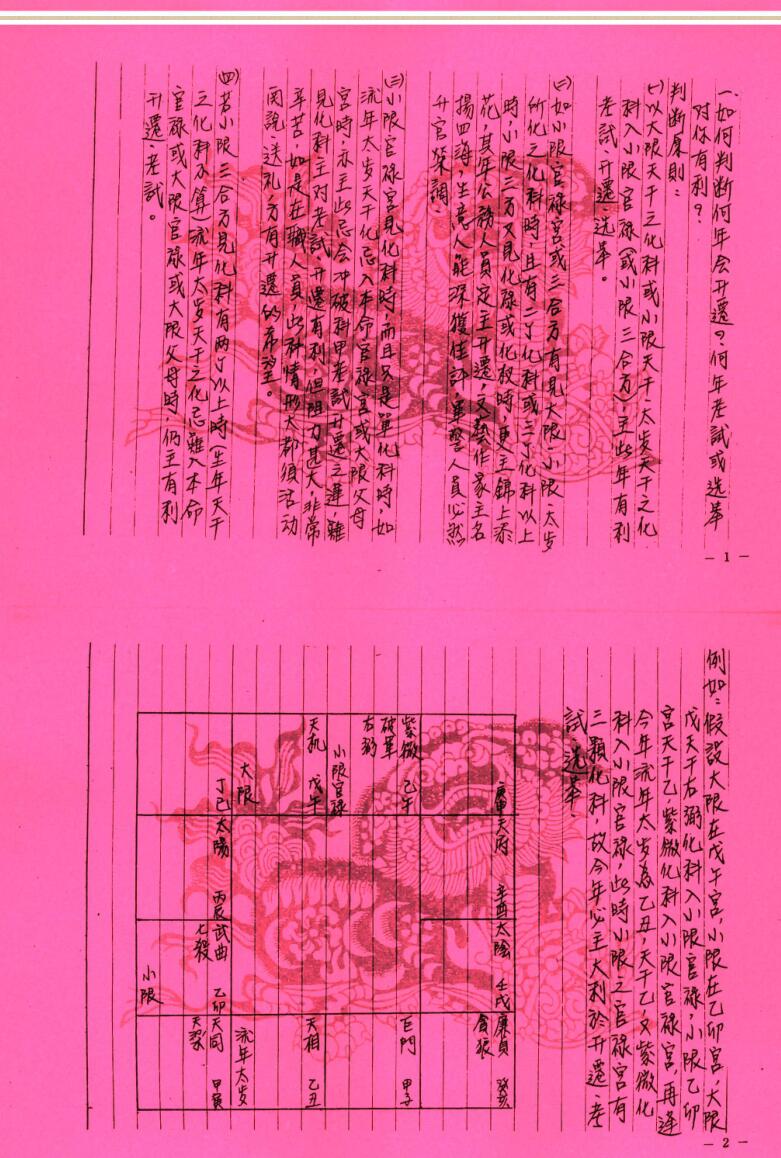 一、如何判斷何年会升遷?何年考試或選舉
对你有利?
判断原則:
㈠以大限天干之化科或小限天干、太岁天干之化
科入小限官祿(或小限三合方),主此年有利
考試、升遷、选举。
㈡如小限官祿宮或三合方有見大限、小限、太岁
所化之化科時,且有二个化科或三个化科以上
時,小限三方又見化祿或化权時,更主錦上添
花,其年公務人員定主升遷,文藝作家主名
揚四海,生意人能深獲佳評,軍警人員必然
升官榮調。
㈢小限官祿宮見化科時,而且只是單化科時,如
流年太岁天干化忌入本命官祿宮或大限父母
宮時,亦主此忌会冲破科甲考試、升遷之運,雖
見化科主对考試、升遷有利,但阻力甚大,非常
辛苦,如是在職人員,此种情形大都須活动
関說、送礼,方有升遷的希望。
㈣若小限三合方見化科有两个以上時(生年天干
之化科不算)流年太岁天干之化忌雖入本命
官祿或大限官祿或大限父母時,仍主有利
升遷、考試。
— 1 —
例如:假設大限在戊午宮,小限在乙卯宮,大限
戊天干右弼化科入小限官祿,小限乙卯
宮天干乙,紫微化科入小限官祿宮,再逢
今年流年太岁為乙丑,天干乙又紫微化
科入小限官祿,此時小限之官祿宮有
三顆化科,故今年必主大利於升遷、考
試、选举。
庚申
天府
辛酉
太陰
壬戌
廉貞
貪狼
癸亥
紫微
破軍
右弼
小限官祿
巨門
甲子
天机
戊午
大限
天相
乙丑
流年太岁
丁巳
太陽
丙辰
武曲
七殺
乙卯
小限
天同
天梁
甲寅
— 2 —